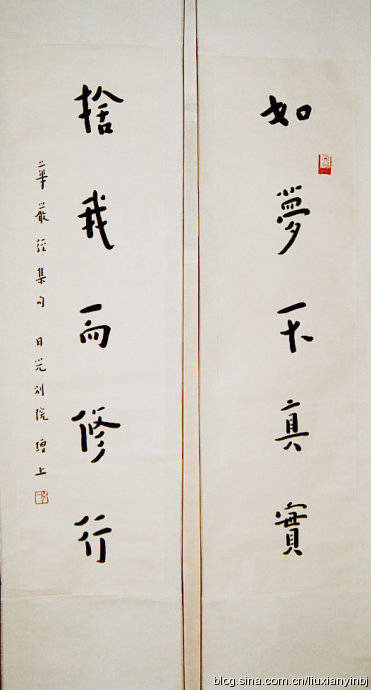 如夢不真實
捨我而修行
華嚴經集句 日光別院 上
blog.sina.com.cn/liuxianyinbj